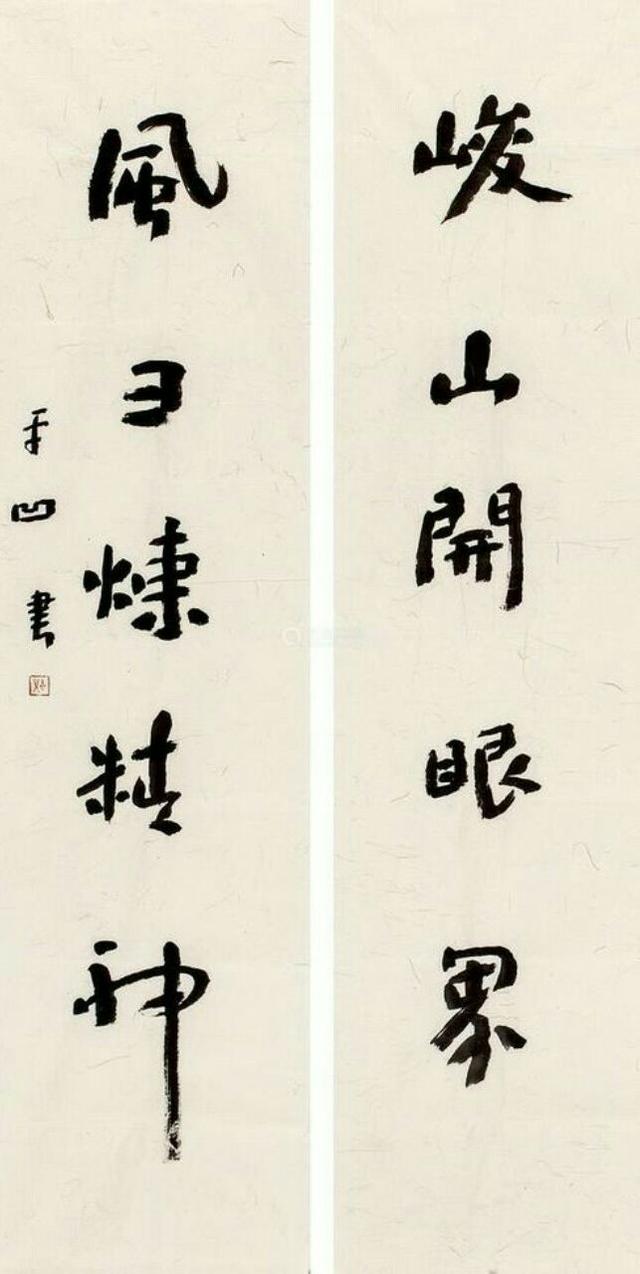 峻山開眼界
風日煉精神
平凹書